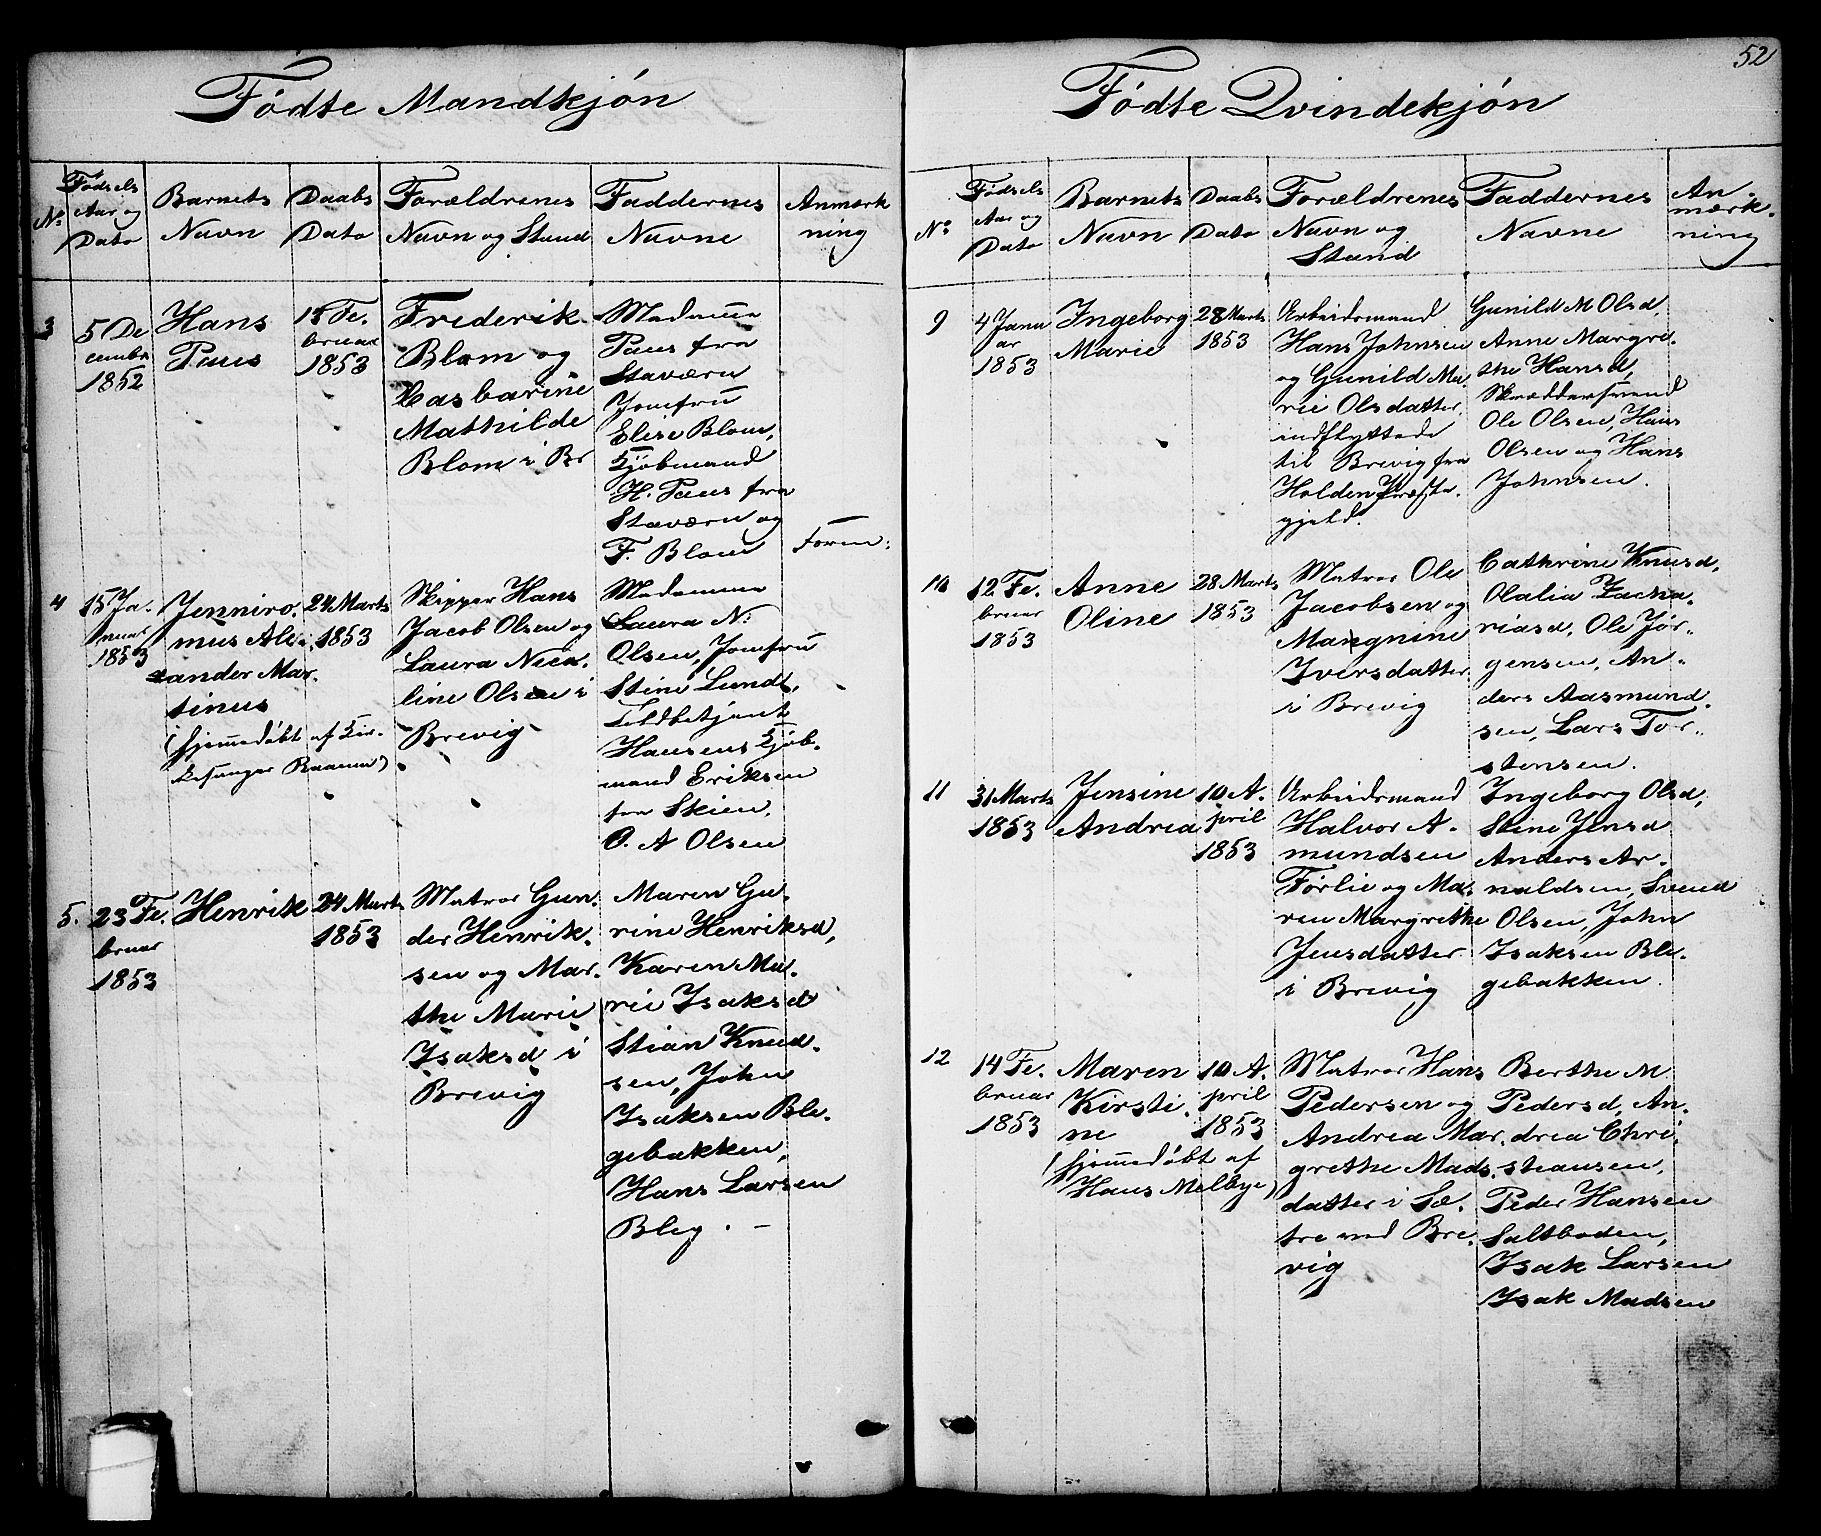 52
Fødte Mandkjøn
No
Fødsels
Aar og
Dato
Barnets
Navn
Daabs
Dato
Forældrenes
Navn og Stand
Faddernes
Navne
Anmærk
ning
3
5 De
cembr
1852
Hans
Paus
15 Fe.
bruar
1853
Frederik
Blom og
Casbarine
Mathilde
Blom i Br
Madame
Paus fra
Staværn
Jomfru
Elise Blom,
Kjøbmand
H. Paus fra
Staværn og
F. Blom
Foren:
4
15 Ja.
nuar
1853
Jenniro.
mus Ale.
xander Mar.
tinus
(hjemmedøbt af Kir.
kesanger Raanum)
24 Marts
1853
Skipper Hans
Jacob Olsen og
Laura Nico.
line Olsen i
Brevig
Madamme
Laura N:
Olsen, Jomfru
Stine Lundt,
Toldbetjent
Hansens Kjøb.
mand Eriksen
fra Skien,
O. A Olsen
5.
23 Fe.
bruar
1853
Henrik
24 Marts
1853
Matros Gun.
der Henrik.
sen og Mar.
the Marie
Isaksd i
Brevig
Maren Gu.
rine Henriksd,
Karen Ma.
rie Isaksd
Stian Knud.
sen, John
Isaksen Ble.
gebakken,
Hans Larsen
Bleg . –
Fødte Qvindekjøn
No
Fødsels
Aar og
Dato
Barnets
Navn
Daabs
Dato
Forældrenes
Navn og
Stand
Faddernes
Navne
An.
mærk.
ning
9
4 Janu
ar
1853
Ingeborg
Marie
28 Marts
1853
Arbeidsmand
Hans Johnsen
og Gunild Ma.
rie Olsdatter,
indflyttede
til Brevig fra
Holden Præste.
gjeld.
Gunild M Olsd,
Anne Margre.
the Hansd,
Skræddersvend
Ole Olsen, Hans
Olsen og Hans
Johnsen.
10
12 Fe.
bruar
1853
Anne
Oline
28 Marts
1853
Matros Ole
Jacobsen og
Mangnine
Iversdatter
i Brevig
Cathrine Knusd,
Olalia Zacha.
riasd, Ole Jør.
gensen, An.
ders Aasmund.
sen, Lars Tor.
stensen.
11
31 Marts
1853
Jensine
Andrea
10 A.
pril
1853
Arbeidsmand
Halvor A.
mundsen
Førlie og Ma.
ren Margrethe
Jensdatter
i Brevig
Ingeborg Olsd,
Stine Jensd
Anders Ar.
naldsen, Svend
Olsen, John
Isaksen Ble.
gebakken.
12
14 Fe.
bruar
1853
Maren
Kirsti.
ne
(hjemmedøbt af
Hans Melbye)
10 A.
pril
1853
Matros Hans
Pedersen og
Andrea Mar.
grethe Mads.
datter i Sæ.
tre ved Bre.
vig
Berthe M
Pedersd, An.
drea Chri.
stiansen,
Peder Hansen
Saltboden,
Isak Larsen
Isak Madsen